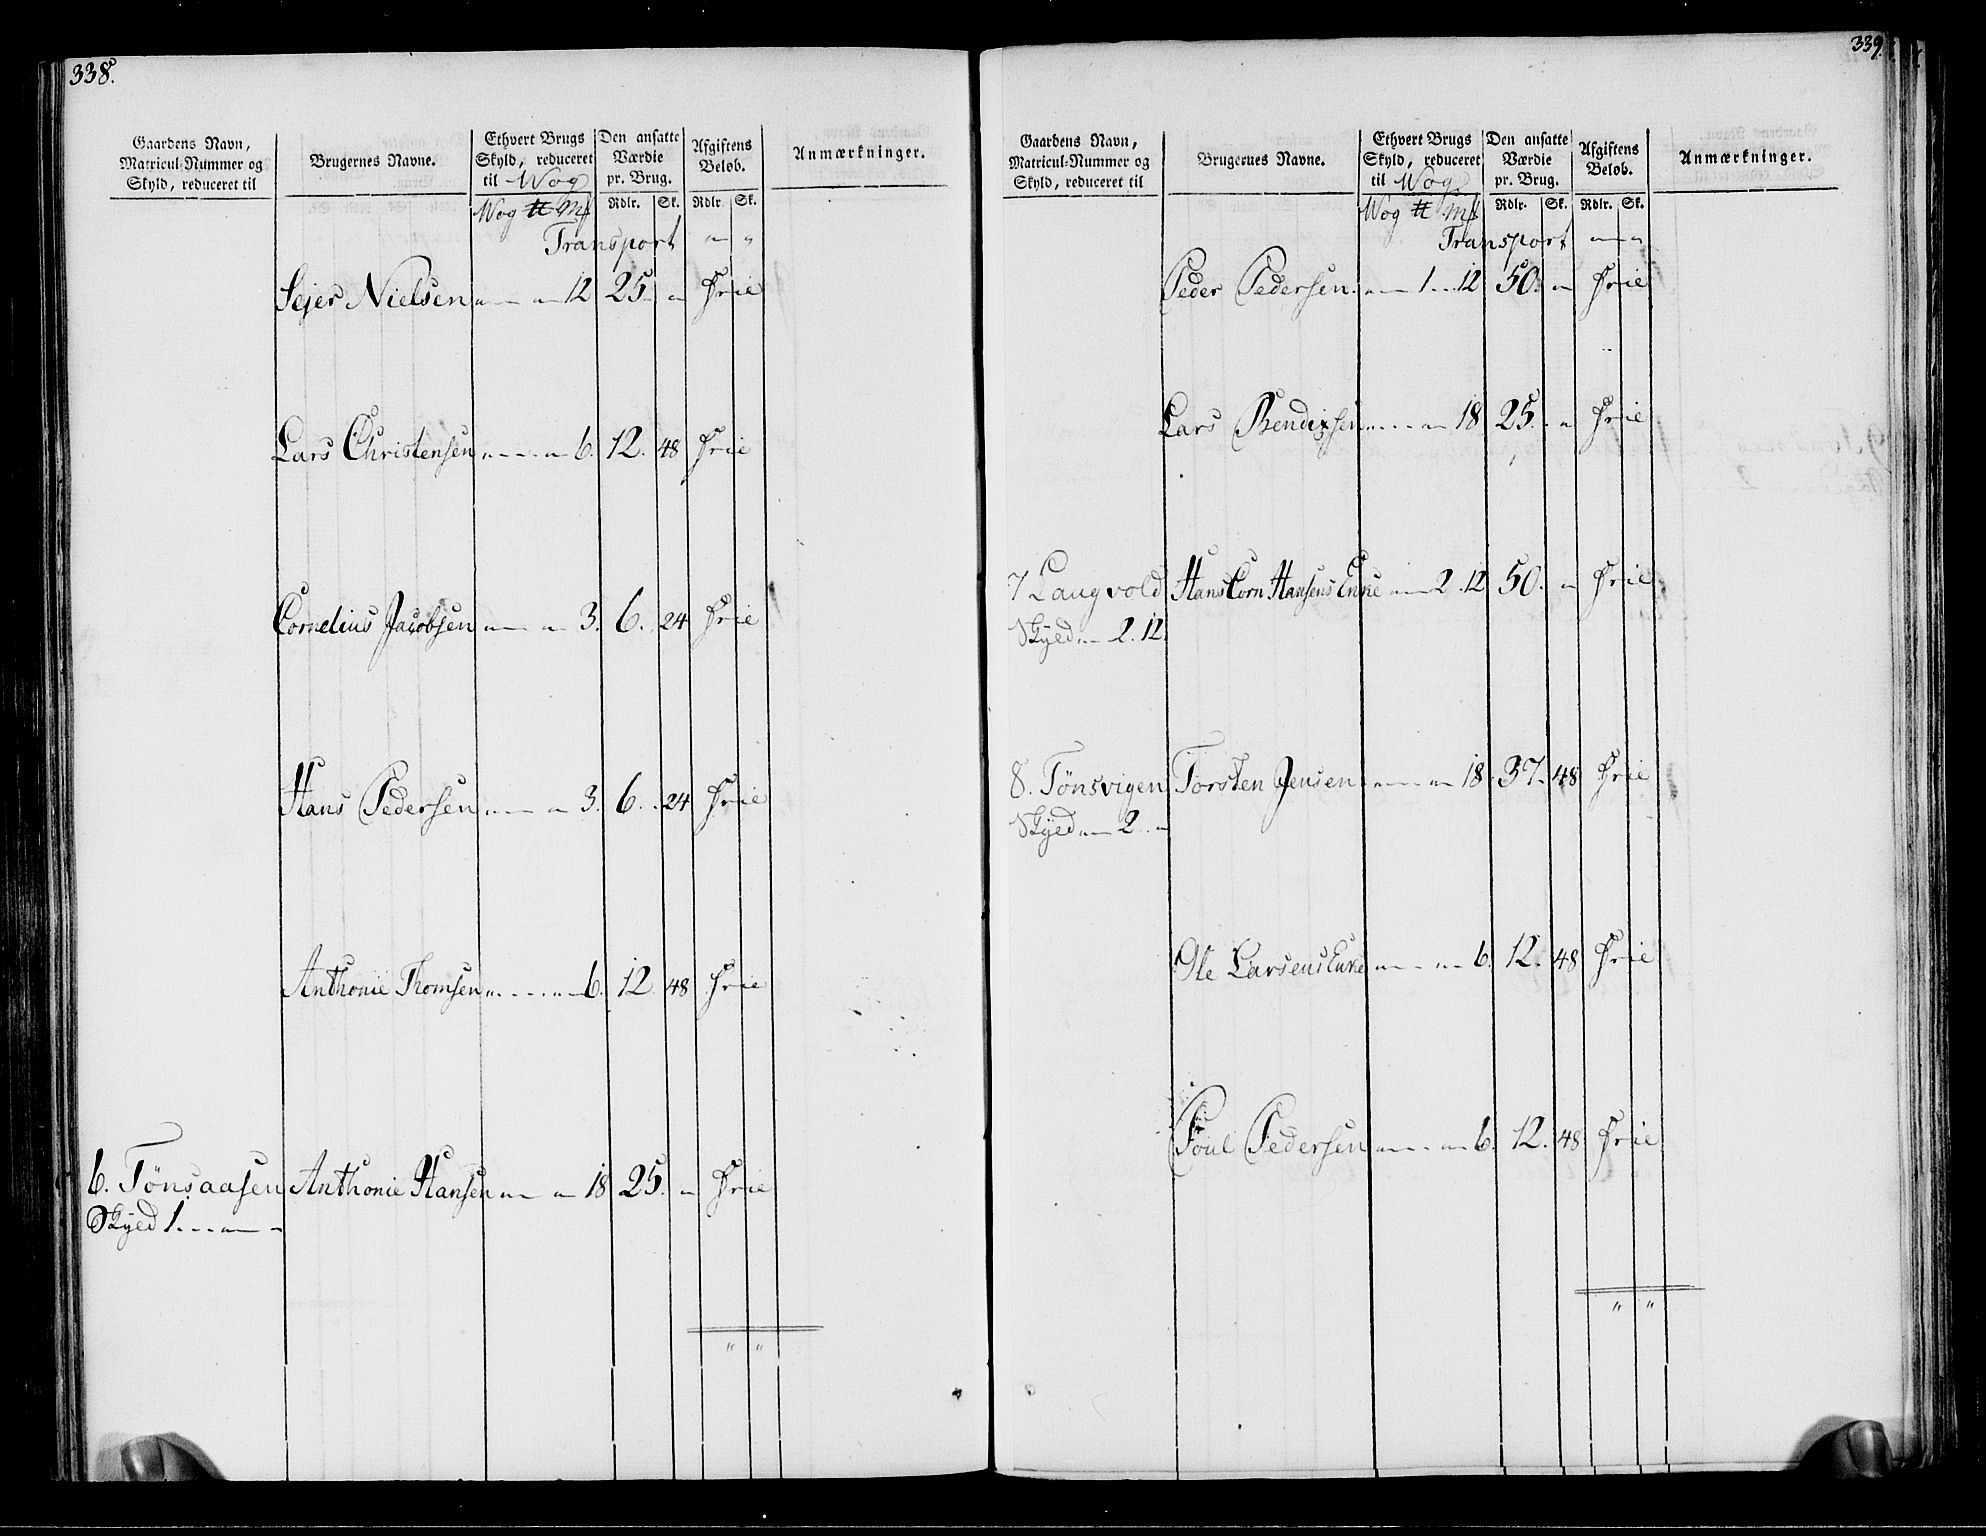 338.
Gaardens Navn,
Matricul-Nummer og
Skyld, reduceret til
Brugernes Navne.
Ethvert Brugs
Skyld, reduceret
til Wog
Den ansatte
Værdie
pr. Brug.
Afgiftens
Beløb.
Anmærkninger.
Wog ℔ Mk Rdlr. Sk. Rdlr. Sk.
Transport " "
Sejer Nielsen " " 12 25. " Frie
Lars Christensen " " 6. 12. 48 Frie
Cornelius Jacobsen " " 3. 6. 24 Frie
Hans Pedersen " " 3. 6. 24 Frie
Anthonie Thomsen " " 6. 12. 48 Frie
6. Tönsaasen Anthonie Hansen " " 18 25. " Frie
Skyld 1. " "
" "
339.
Gaardens Navn,
Matricul-Nummer og
Skyld, reduceret til
Brugernes Navne.
Ethvert Brugs
Skyld, reduceret
til Wog
Den ansatte
Værdie
pr. Brug.
Afgiftens
Beløb.
Anmærkninger.
Wog ℔ Mk Rdlr. Sk. Rdlr. Sk.
Transport " "
Peder Pedersen. " 1. 12 50. " Frie
Lars Bendixsen " " 18 25. " Frie
7 Langvold Hans Corn Hansens Enke " 2. 12 50. " Frie
Skyld " 2. 12.
8. Tönsvigen Torsten Jensen " " 18. 37. 48 Frie
Skyld " 2. "
Ole Larsens Enke " " 6. 12. 48 Frie
Poul Pedersen " " 6. 12. 48 Frie
" "